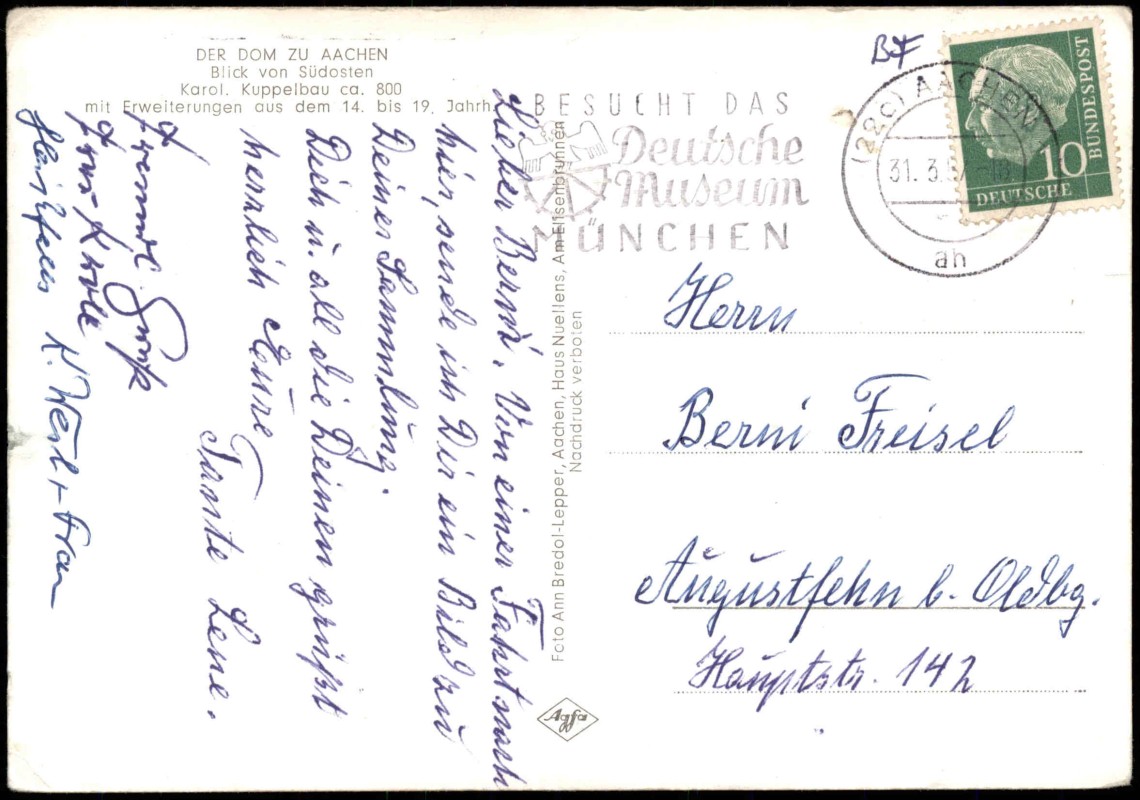 DER DOM ZU AACHEN
Blick von Südosten
Karol. Kuppelbau ca. 800
mit Erweiterungen aus dem 14. bis 19. Jahrh.
Lieber Berni. Von einer Fahrt nach
hier, sende ich Dir ein Bild zu
Deiner Sammlung.
Dich u. all die Deinen grüßt
herzlich Eure
Tante Lene.
K. Werl + Frau
Foto Ann Bredol-Lepper, Aachen, Haus Nuellens, Am Elisenbrunnen
Nachdruck verboten
Agfa
BESUCHT DAS
Deutsche
Museum
MÜNCHEN
BF
(22c) AACHEN
31. 3. 5
ah
10
BUNDESPOST
DEUTSCHE
Herrn
Berni Freisel
Augustfehn b. Oldbg.
Hauptstr. 142